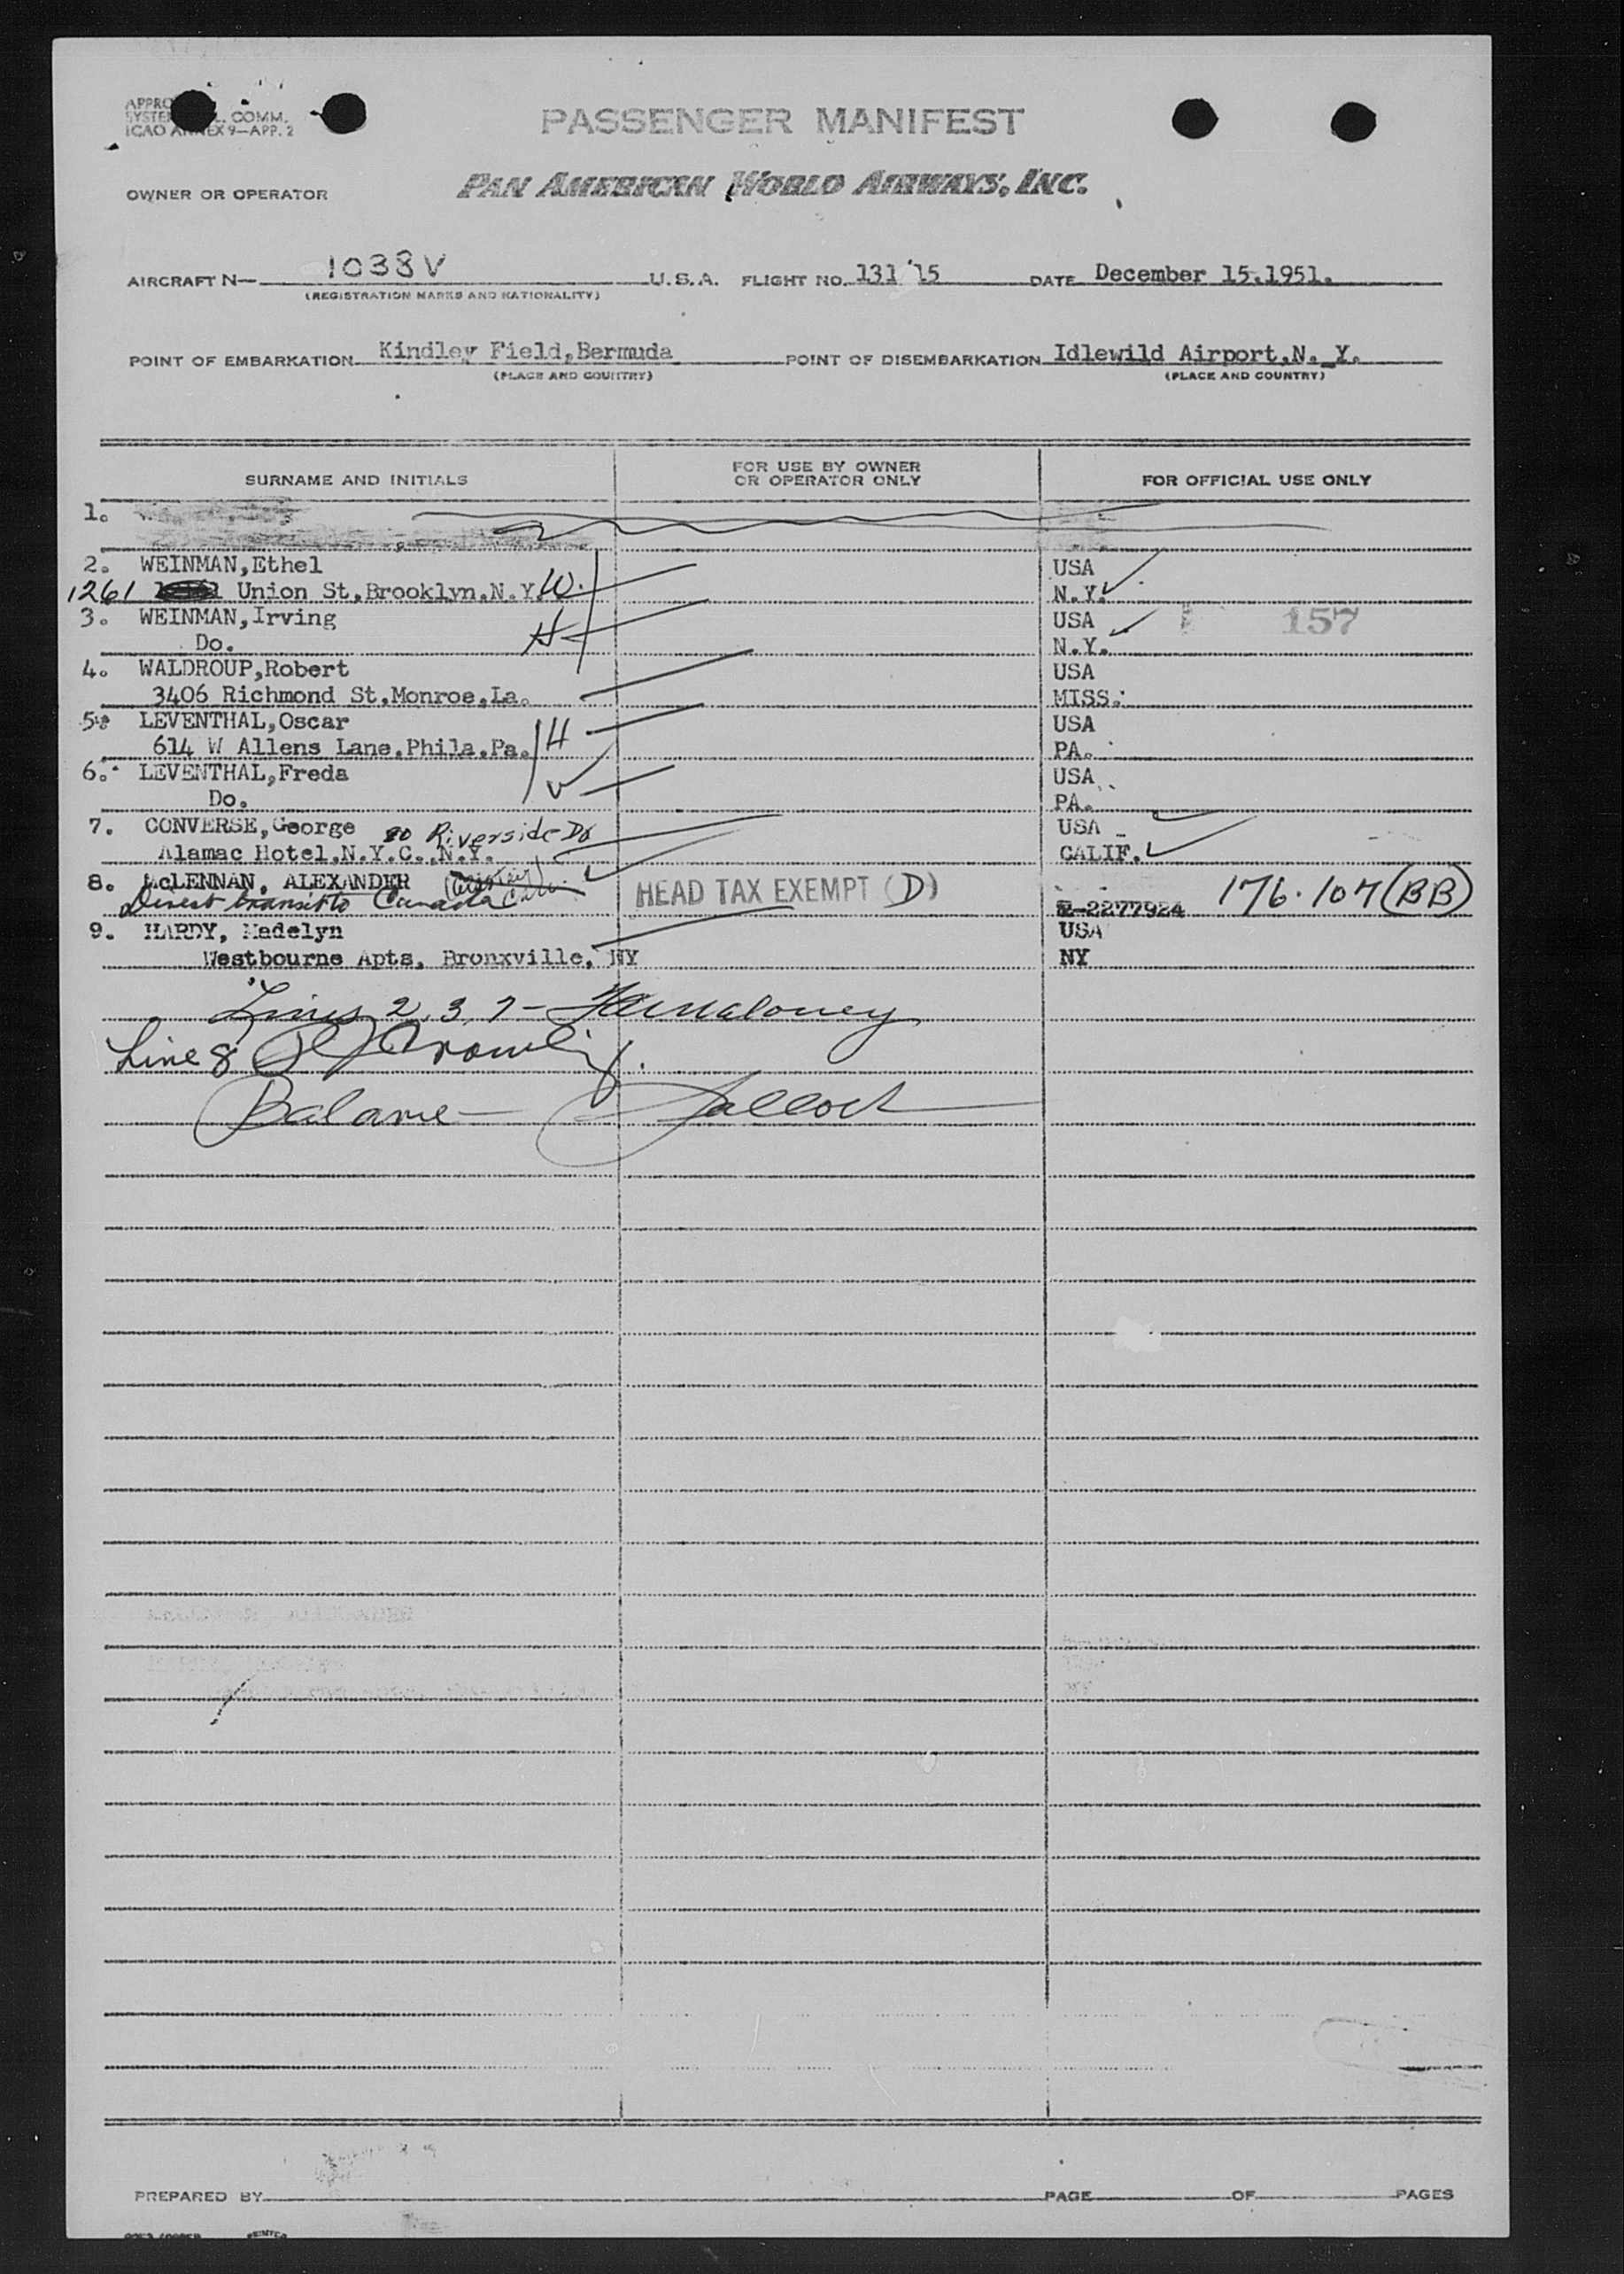 PASSENGER MANIFEST
COMM.
ICAO ANNEX 9-APP. 2
OWNER OR OPERATOR PAN AMERICAN WORLD AIRWAYS, INC.
AIRCRAFT N- 1038V U.S.A. FLIGHT NO. 131 '15 DATE December 15.1951.
(REGISTRATION MARKS AND NATIONALITY)
POINT OF EMBARKATION Kindley Field,Bermuda POINT OF DISEMBARKATION Idlewild Airport,N. Y.
(PLACE AND COUNTRY) (PLACE AND COUNTRY)
SURNAME AND INITIALS FOR USE BY OWNER OR OPERATOR ONLY FOR OFFICIAL USE ONLY
1.
2. WEINMAN,Ethel USA
1261 Union St,Brooklyn.N.Y. W. N.Y.
3. WEINMAN,Irving USA 157
Do. H N.Y.
4. WALDROUP,Robert USA
3406 Richmond St,Monroe,La. MISS.
5. LEVENTHAL,Oscar USA
614 W Allens Lane.Phila.Pa. H PA.
6. LEVENTHAL,Freda USA
Do. PA.
7. CONVERSE,George 80 Riverside Dr USA
Alamac Hotel,N.Y.C.,N.Y. CALIF.
8. McLENNAN, ALEXANDER HEAD TAX EXEMPT (D) 176.107(BB)
Direct transit to Canada -2277924
9. HARDY, Madelyn USA
Westbourne Apts, Bronxville, NY NY
Lines 2, 3, 7 - Maloney
Line 8
Balance
PREPARED BY PAGE OF PAGES